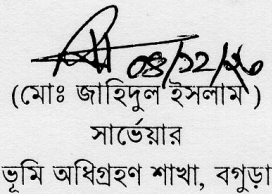 08/12/20
(মোঃ জাহিদুল ইসলাম)
সার্ভেয়ার
ভূমি অধিগ্রহণ শাখা, বগুড়া